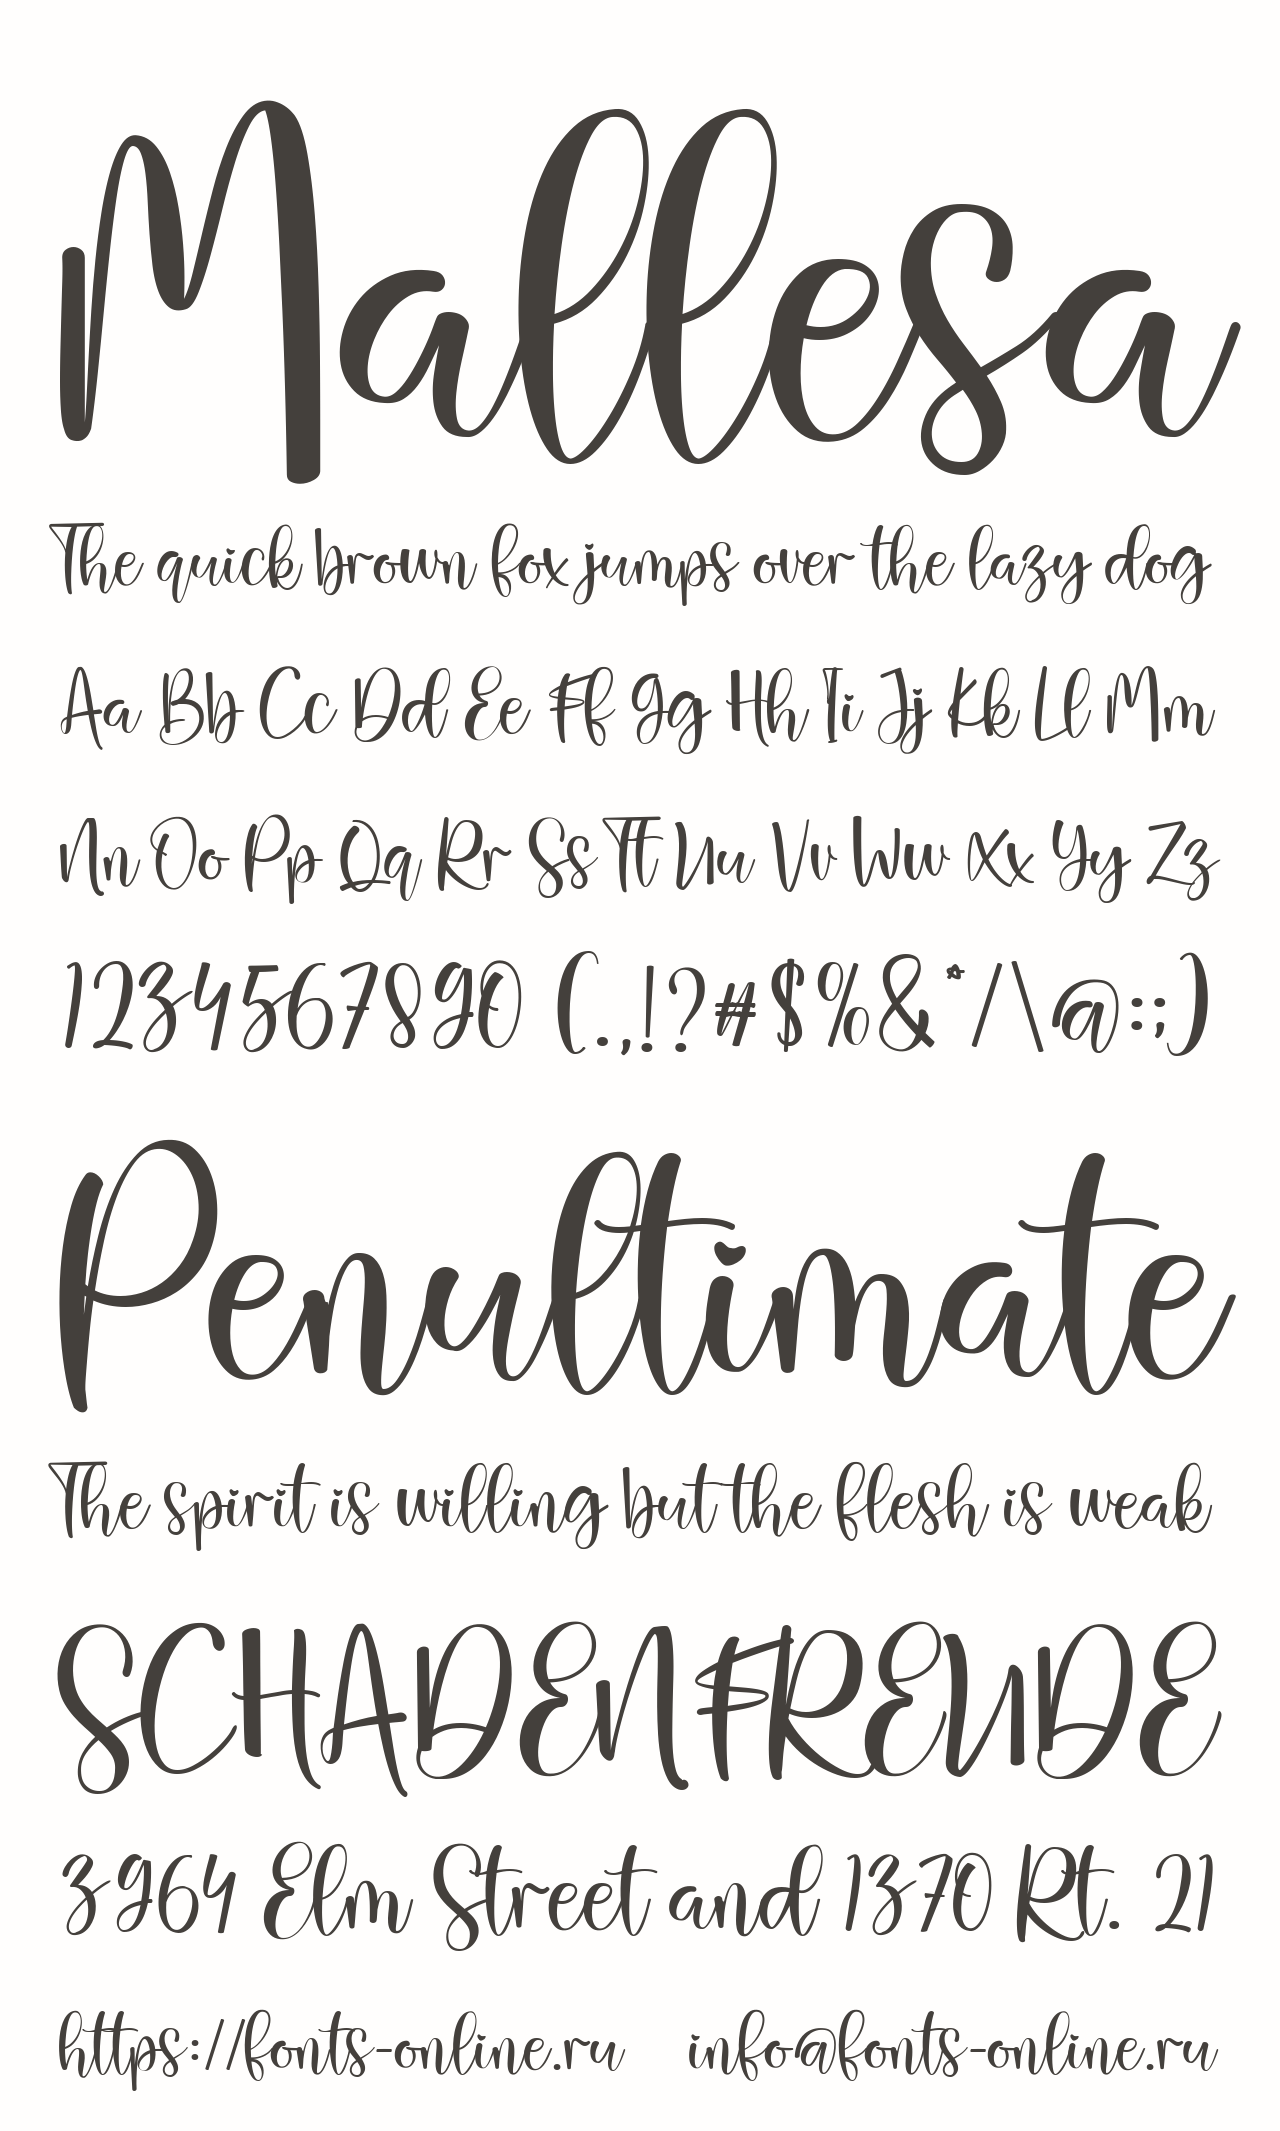 Mallesa
The quick brown fox jumps over the lazy dog
Aa Bb Cc Dd Ee Ff Gg Hh Ii Jj Kk Ll Mm
Nn Oo Pp Qq Rr Ss Tt Uu Vv Ww Xx Yy Zz
1234567890 (.,!?#$%&*/\@:;)
Penultimate
The spirit is willing but the flesh is weak
SCHADENFREUDE
3964 Elm Street and 1370 Rt. 21
https://fonts-online.ru info@fonts-online.ru